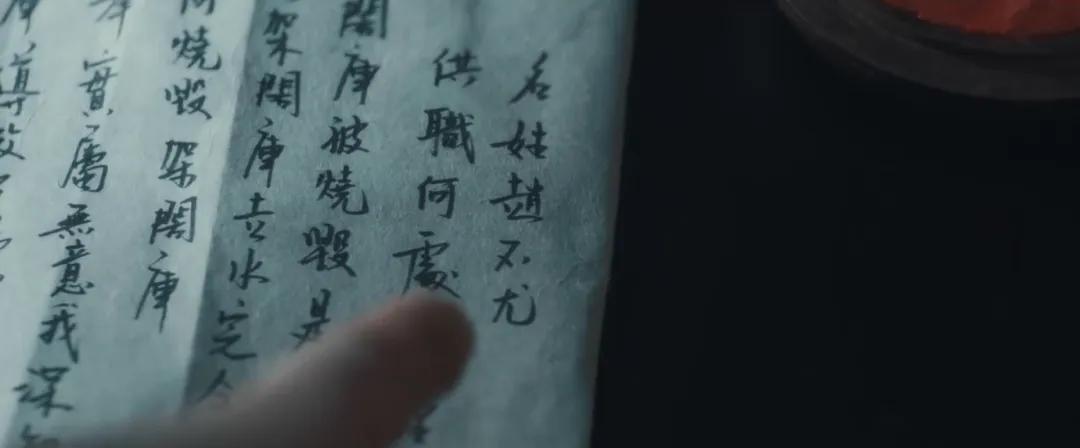 名姓趙不尤
供職何處
閣庫被燒毀是
架閣庫走水完
燒毀架閣庫
實屬無意我深
導致